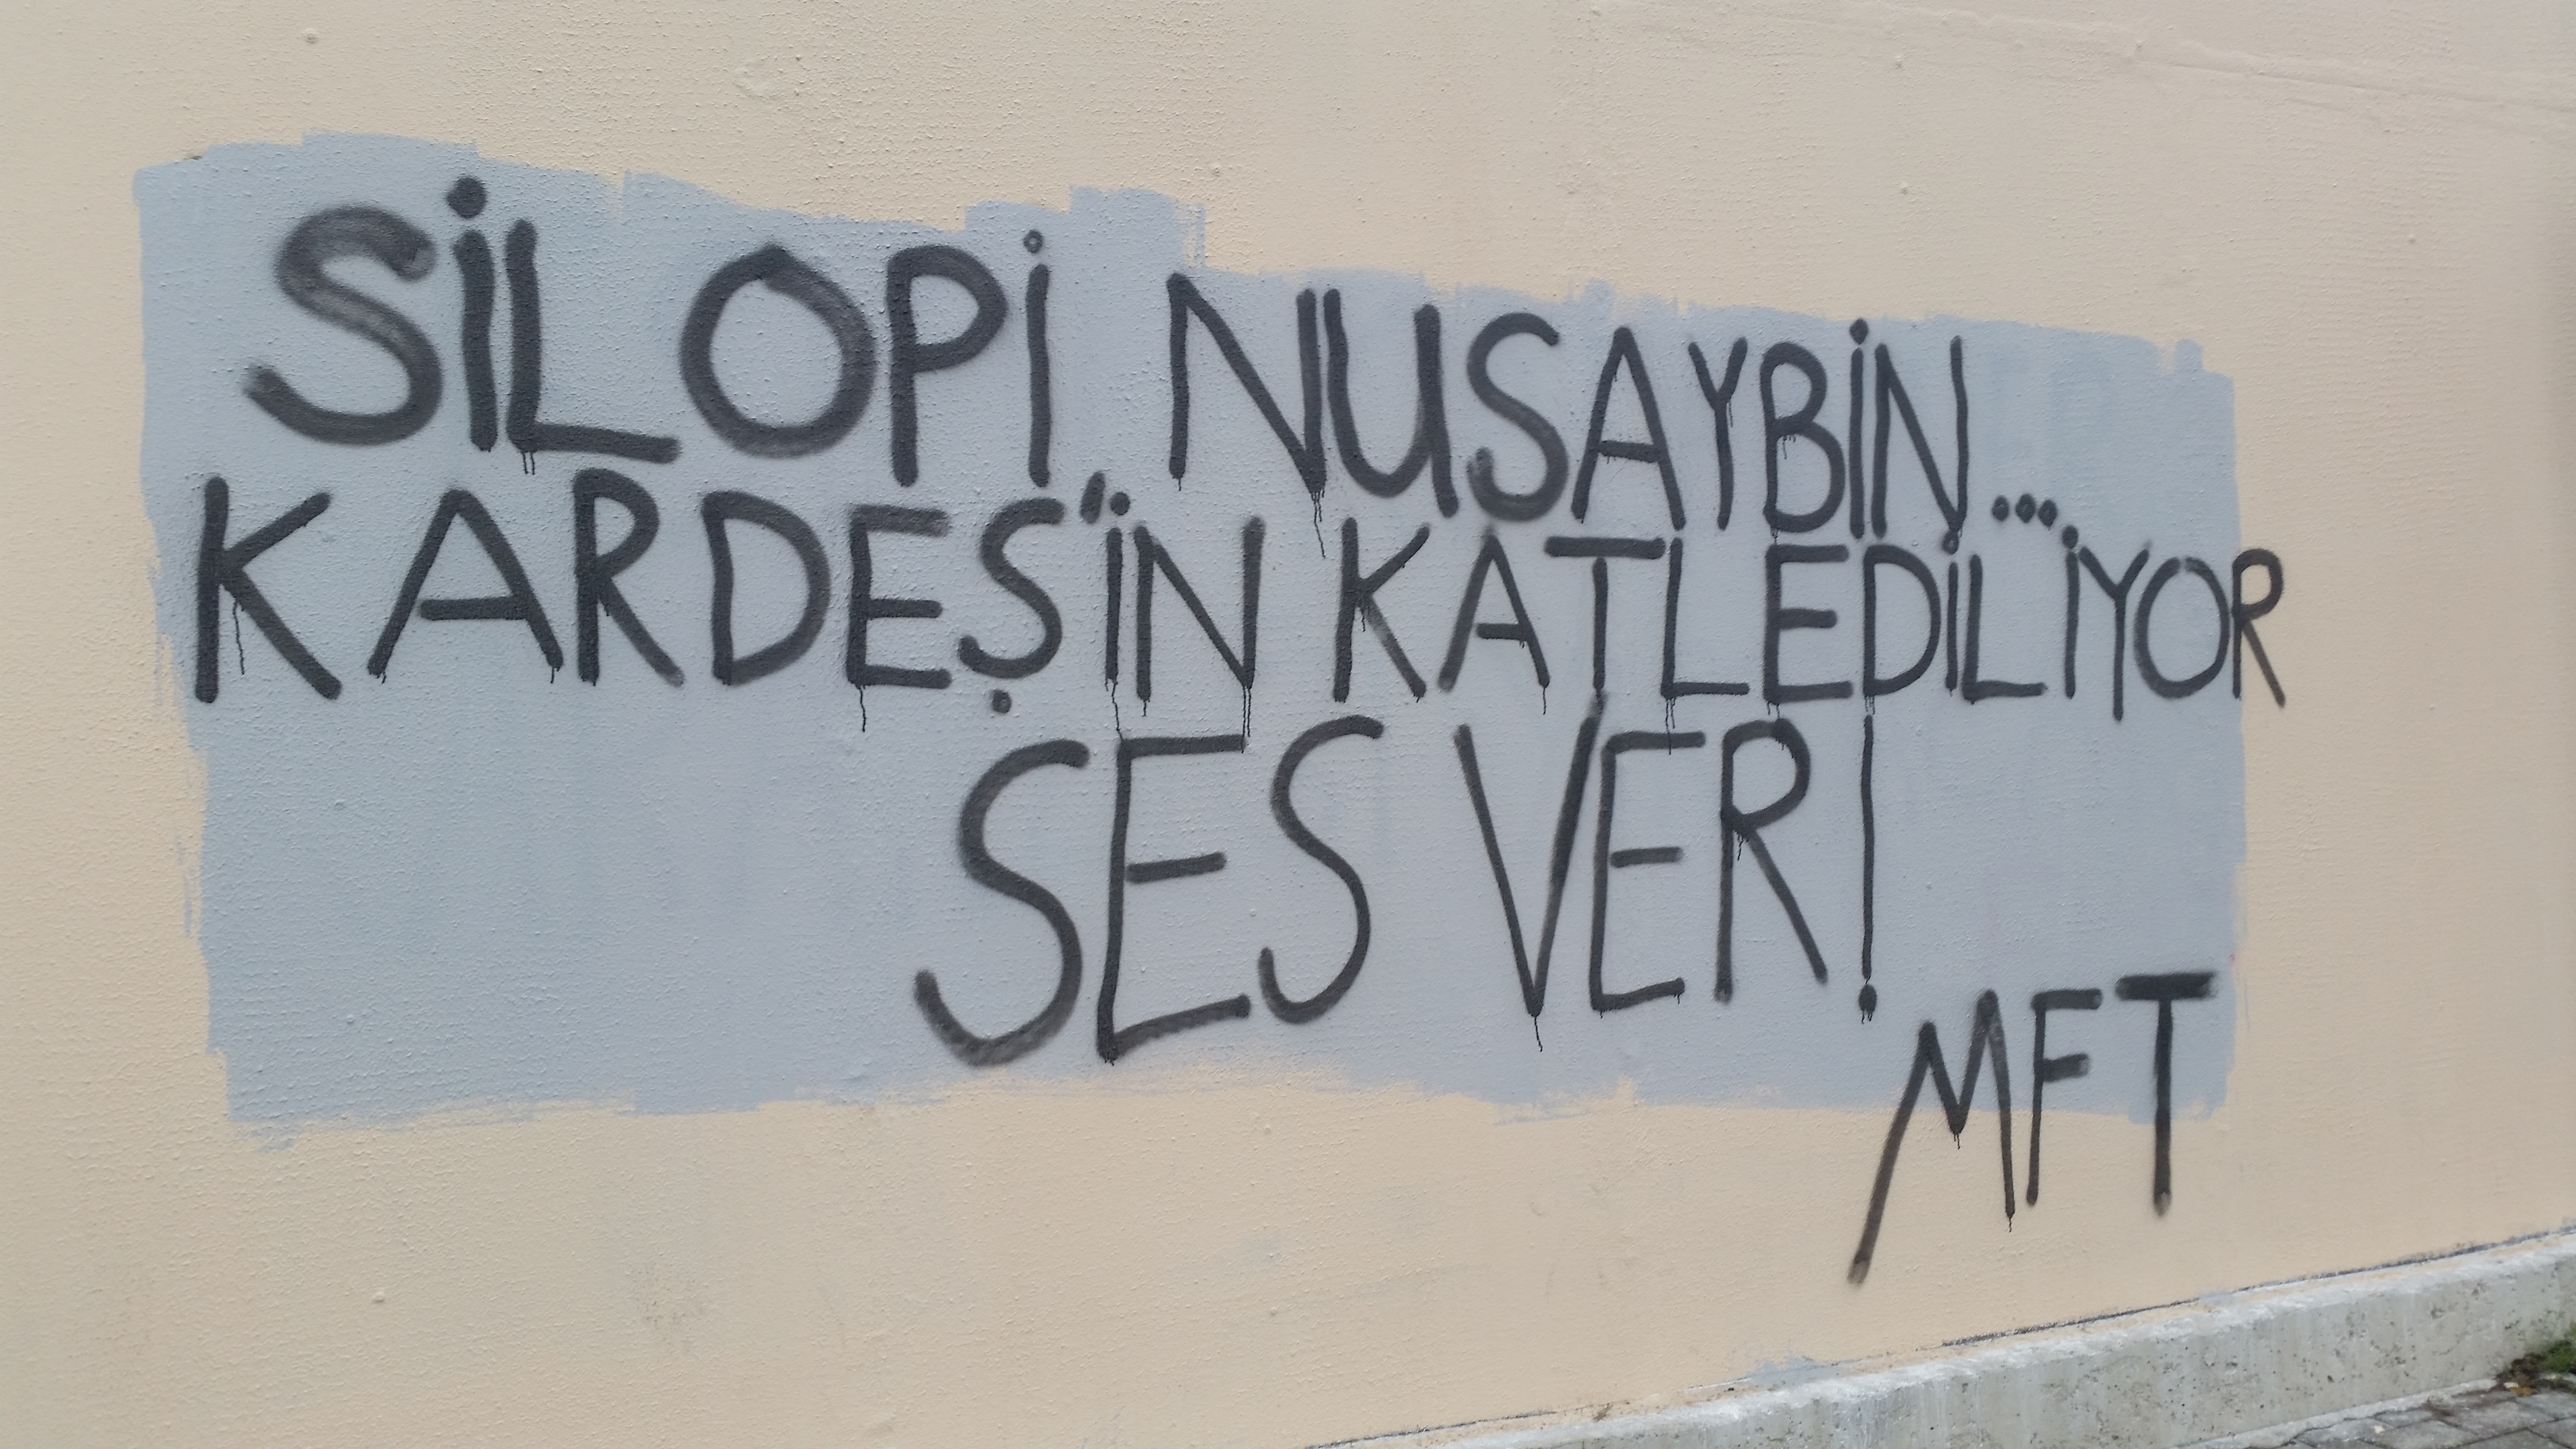 SİLOPİ NUSAYBİN...
KARDEŞ'İN KATLEDİLİYOR
SES VER!
MFT